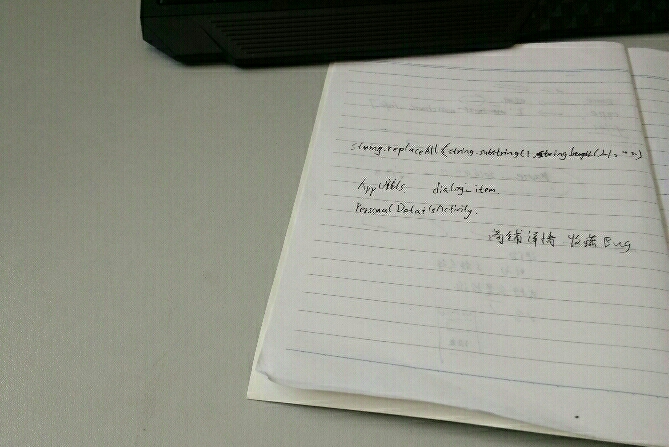 string.replaceAll(string.substring(1, string.length()-1), "**")
AppUtils dialog_item
Personal Data Activity.
商铺详情 收藏 Bug